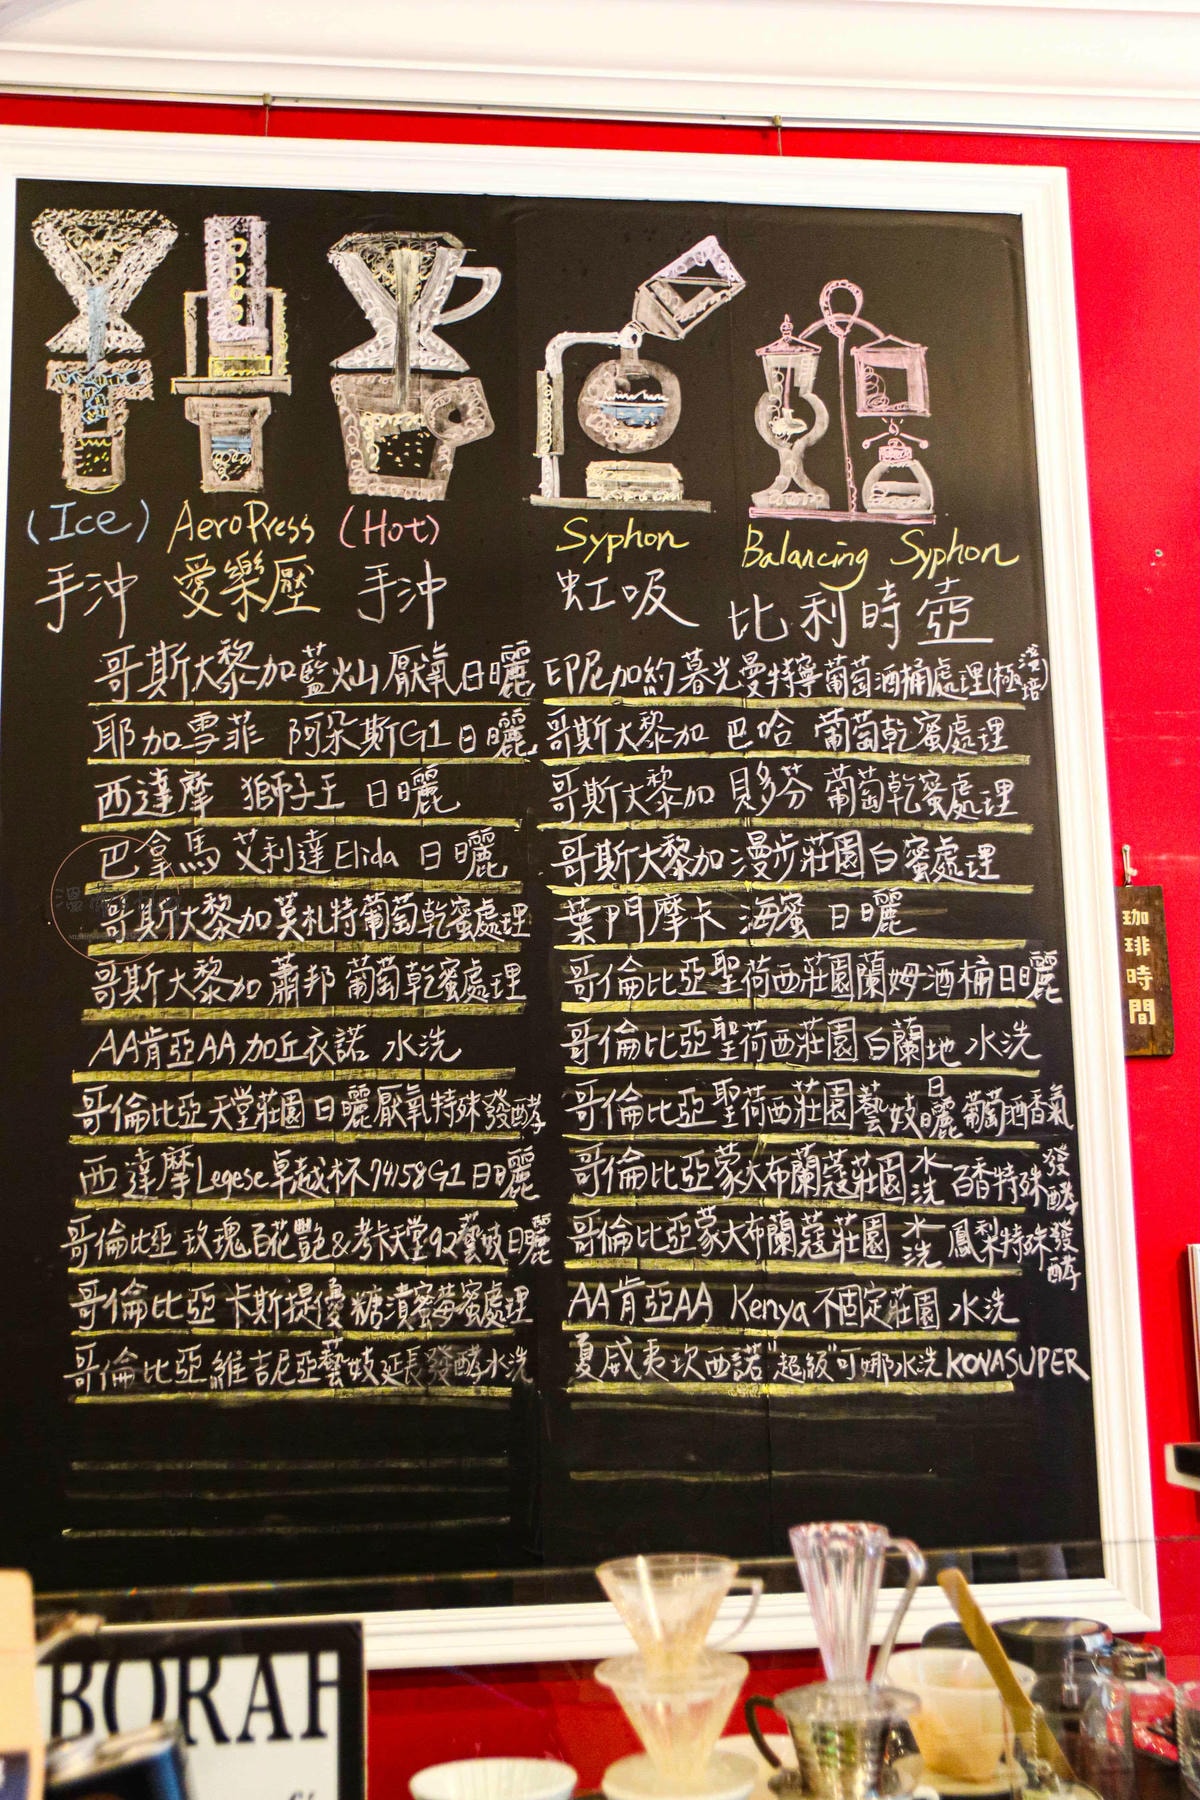 (Ice) AeroPress (Hot)
手沖 愛樂壓 手沖
Syphon Balancing Syphon
虹吸 比利時壺
哥斯大黎加藍灿厭氧日曬
耶加雪菲 阿朵斯G1日曬
西達摩 獅子王 日曬
巴拿馬 艾利達Elida 日曬
哥斯大黎加莫札特葡萄乾蜜處理
哥斯大黎加 蕭邦 葡萄乾蜜處理
AA肯亞AA 加丘衣諾 水洗
哥倫比亞 天堂莊園 日曬厭氧特殊發酵
西達摩Legese卓越杯74158G1日曬
哥倫比亞 玫瑰百花艷&考卡天堂92藝妓日曬
哥倫比亞 卡斯提優 糖漬蜜莓蜜處理
哥倫比亞維吉尼亞藝妓延長發酵水洗
印尼加約暮光曼特寧葡萄酒桶處理(極淺培)
哥斯大黎加 巴哈 葡萄乾蜜處理
哥斯大黎加 貝多芬 葡萄乾蜜處理
哥斯大黎加 漫步莊園白蜜處理
葉門摩卡 海蜜 日曬
哥倫比亞聖荷西莊園蘭姆酒桶日曬
哥倫比亞聖荷西莊園白蘭地 水洗
哥倫比亞聖荷西莊園藝妓日曬葡萄酒香氣
哥倫比亞蒙大布蘭蔻莊園水洗百香特殊發酵
哥倫比亞蒙大布蘭蔻莊園 水洗 鳳梨特殊發酵
AA肯亞AA Kenya 不固定莊園 水洗
夏威夷坎西諾"超級"可娜水洗KONASUPER
珈琲時間
BORAH